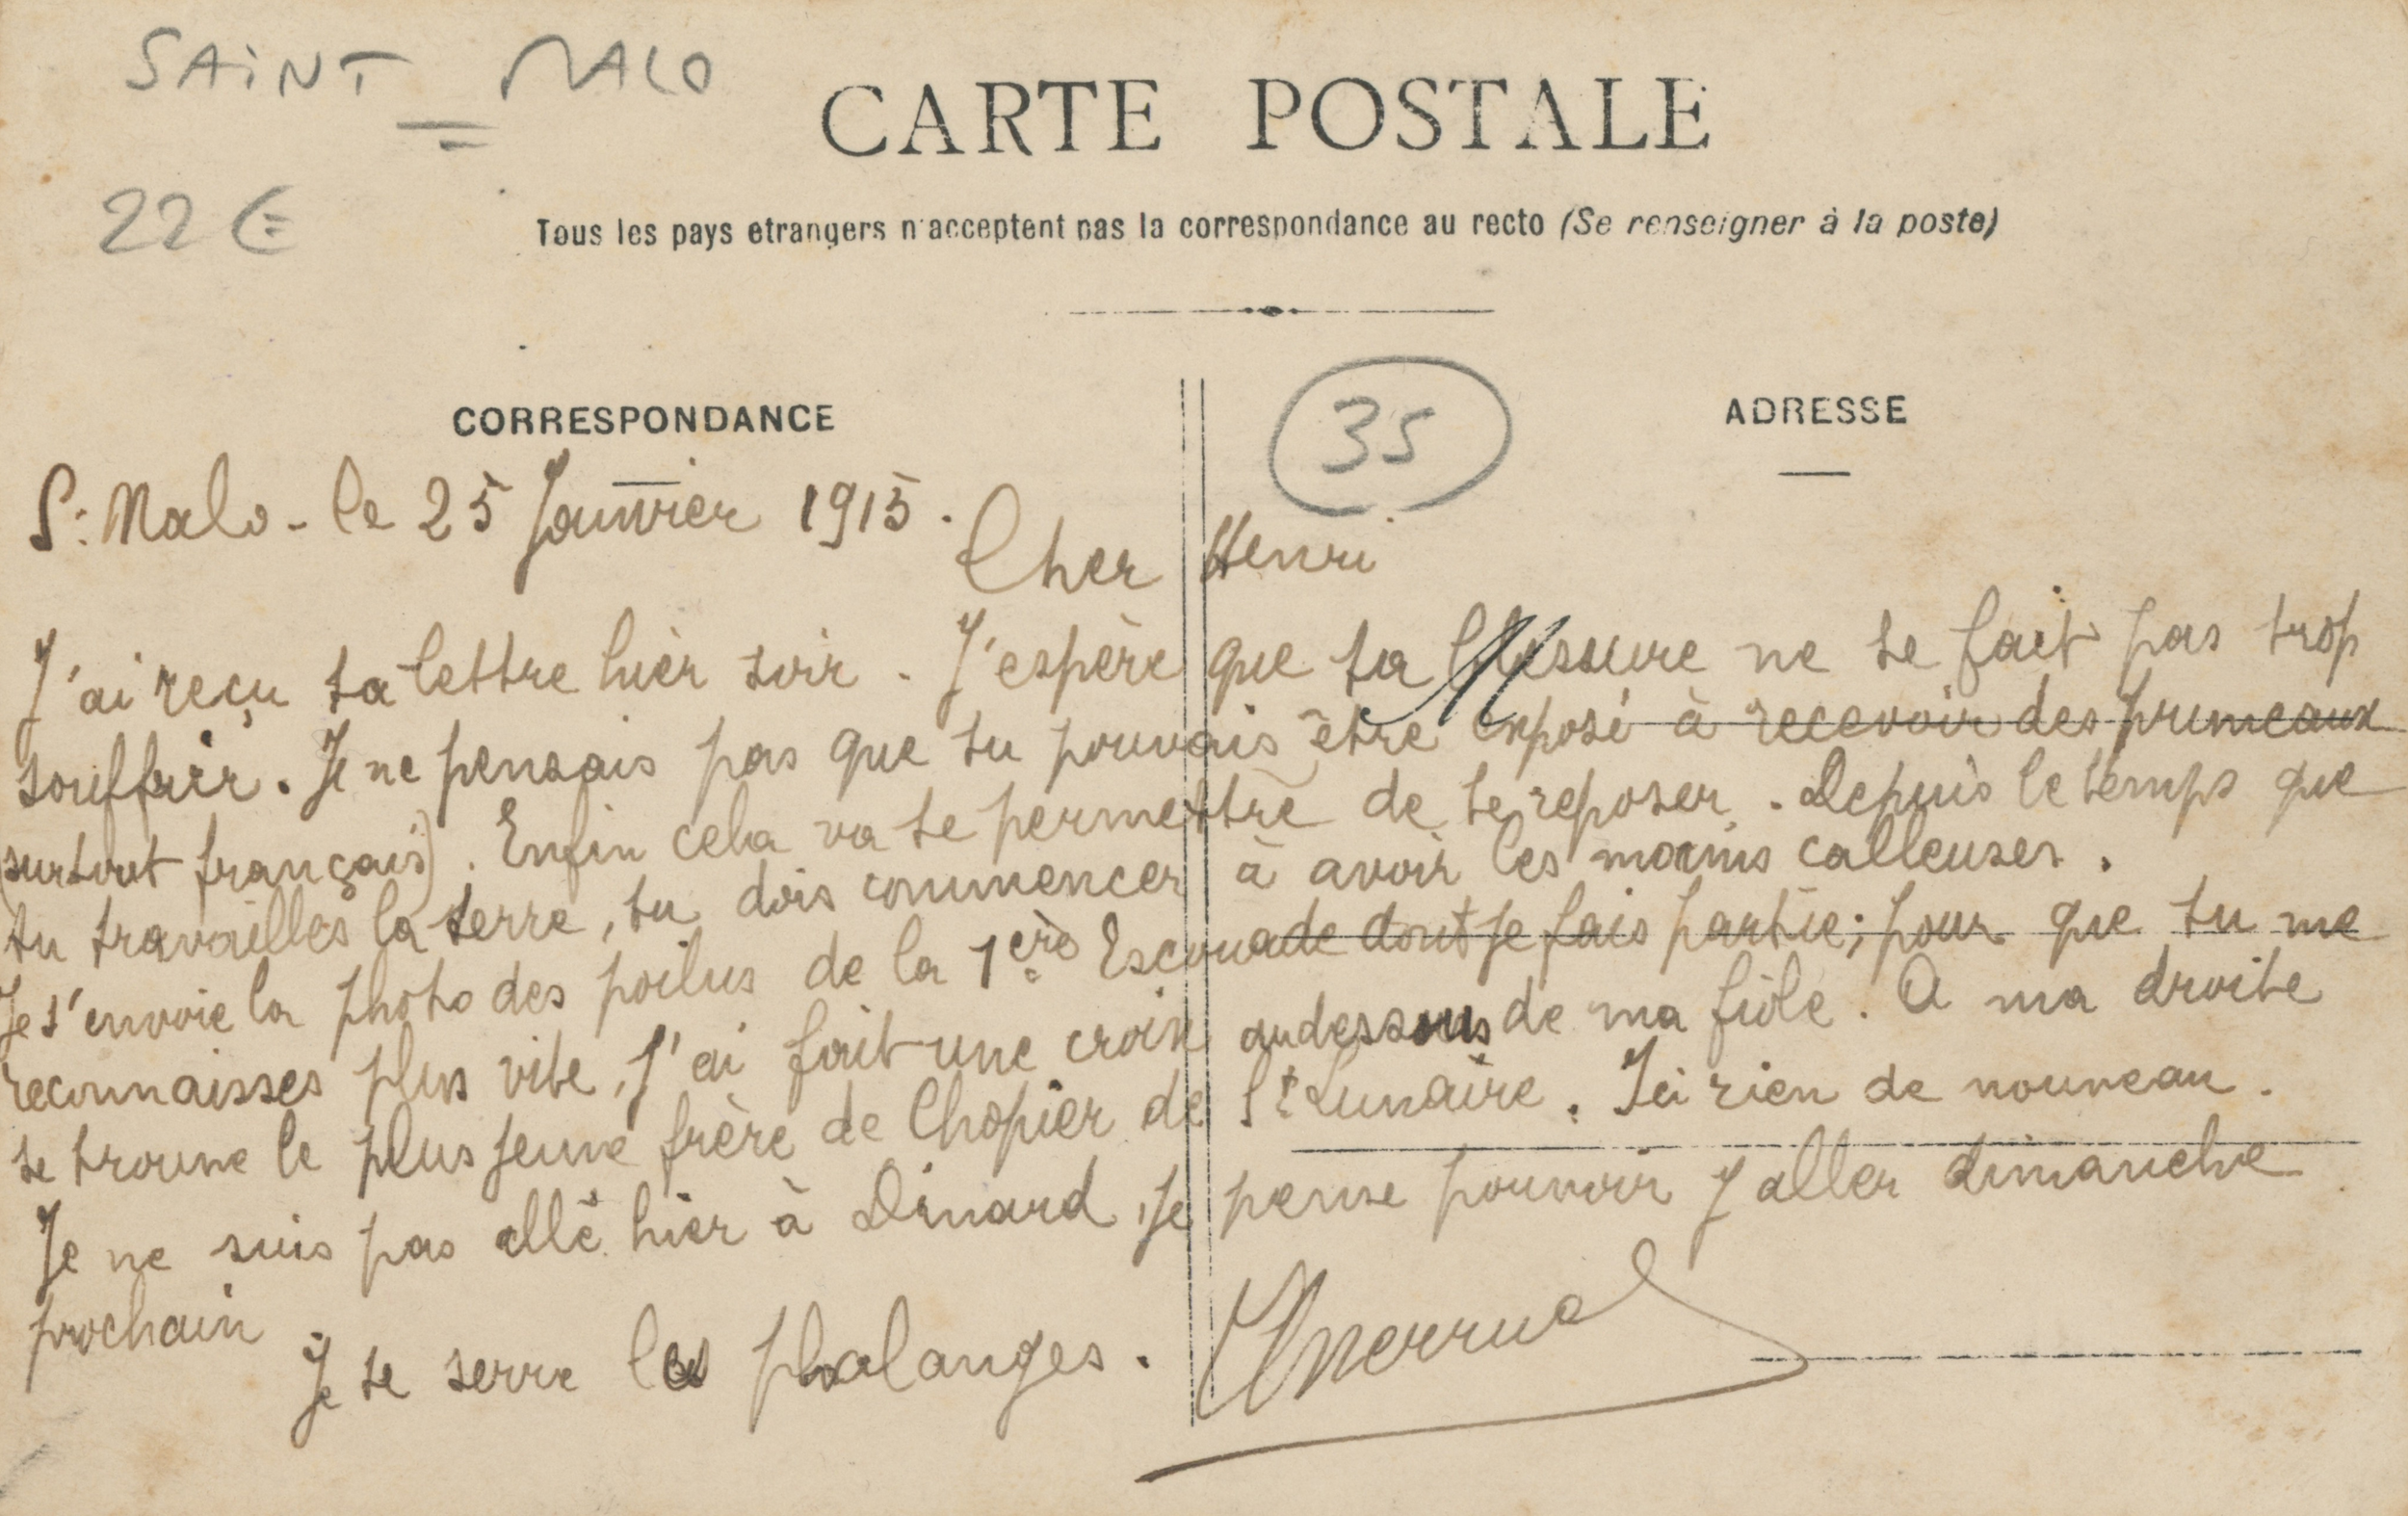 SAINT-MALO
22 €
CARTE POSTALE
Tous les pays etrangers n'acceptent pas la correspondance au recto (Se renseigner à la poste)
35
CORRESPONDANCE
ADRESSE
St Malo - le 25 Janvier 1915.
Cher Henri
J'ai reçu ta lettre hier soir. J'espère que ta blessure ne te fait pas trop
souffrir. Je ne pensais pas que tu pouvais être exposé à recevoir des pruneaux
(surtout français). Enfin cela va te permettre de te reposer. Depuis le temps que
tu travailles la terre, tu dois commencer à avoir les mains calleuses.
Je t'envoie la photo des poilus de la 1ère Escouade dont je fais partie; pour que tu me
reconnaisses plus vite, j'ai fait une croix au dessous de ma fiole. A ma droite
se trouve le plus jeune frère de Chopier de St Lunaire. Ici rien de nouveau.
Je ne suis pas allé hier à Dinard, je pense pouvoir y aller dimanche
prochain
Je te serre les phalanges.